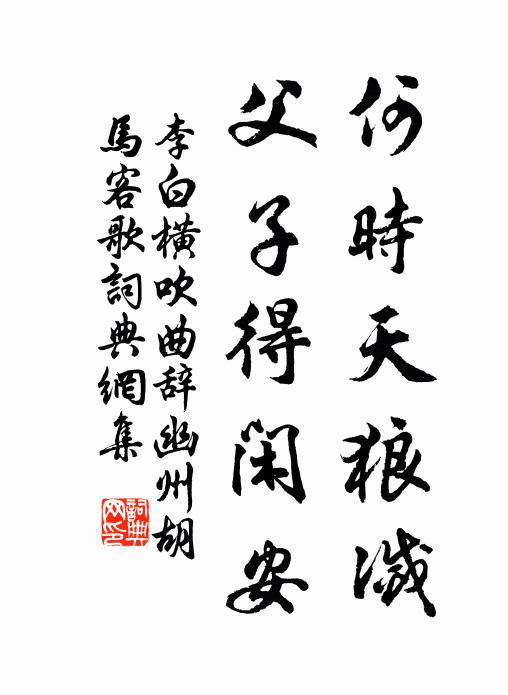 何時天狼滅
父子得閑安
李白橫吹曲辞幽州胡
馬客歌詞典網集
詞典
网印